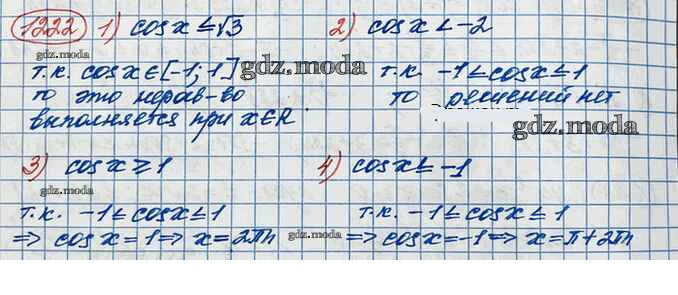 1222 1) cos x ≤ √3 2) cos x < -2
т.к. cos x ∈ [-1; 1] т.к. -1 ≤ cos x ≤ 1
gdz.moda
то это нерав-во то решений нет
выполняется при x ∈ R.
gdz.moda gdz.moda
3) cos x ≥ 1 4) cos x ≤ -1
gdz.moda
т.к. -1 ≤ cos x ≤ 1 т.к. -1 ≤ cos x ≤ 1
=> cos x = 1 => x = 2πn gdz.moda => cos x = -1 => x = π + 2πn